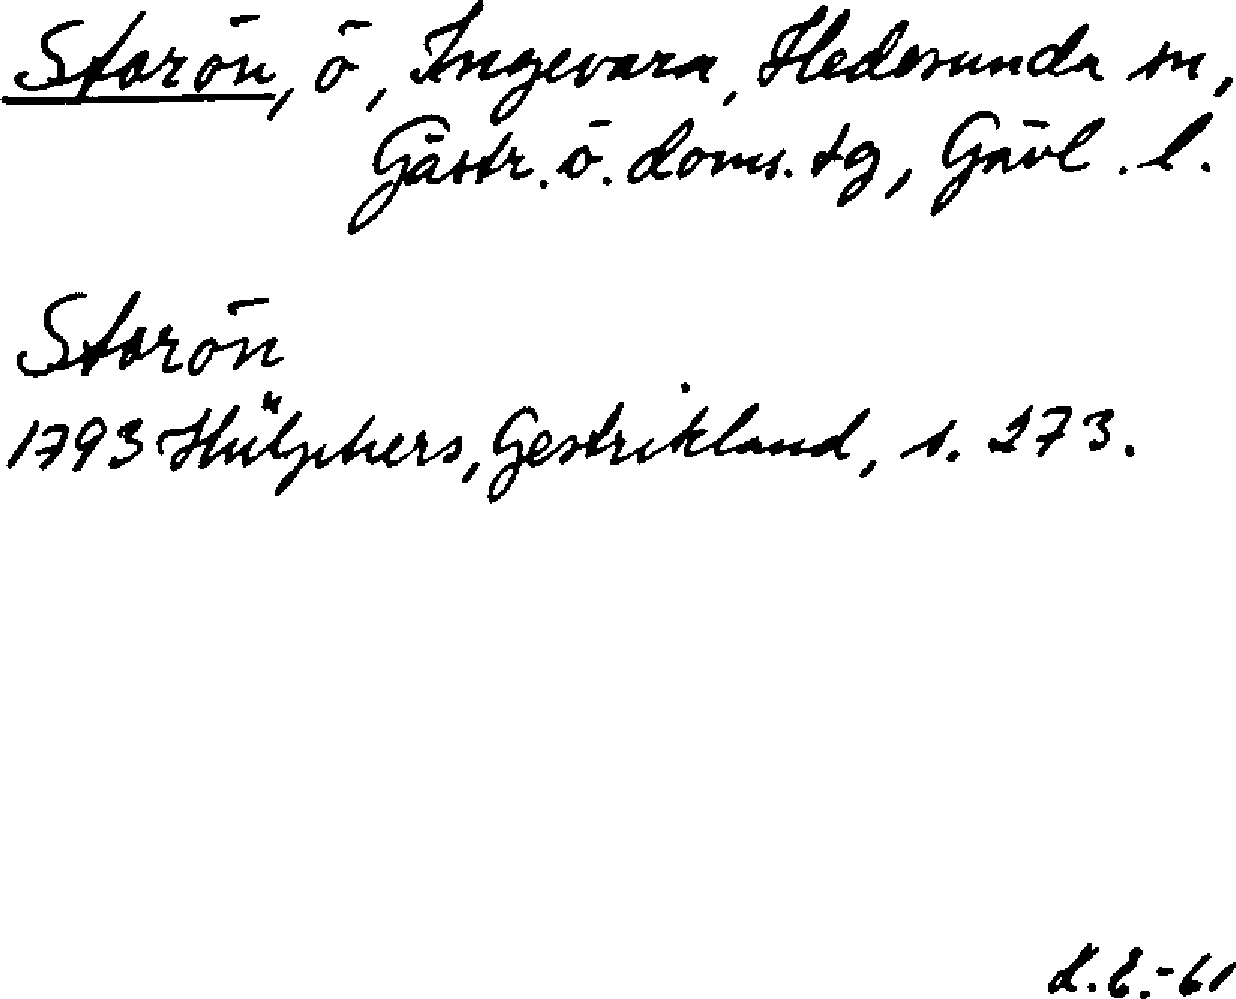 Storön, ö, Ingevara, Hedesunda sn,
Gästr. ö. doms. tg, Gävl. l.
Storön
1793 Hülphers, Gestrikland, s. 273.
L.E.-61